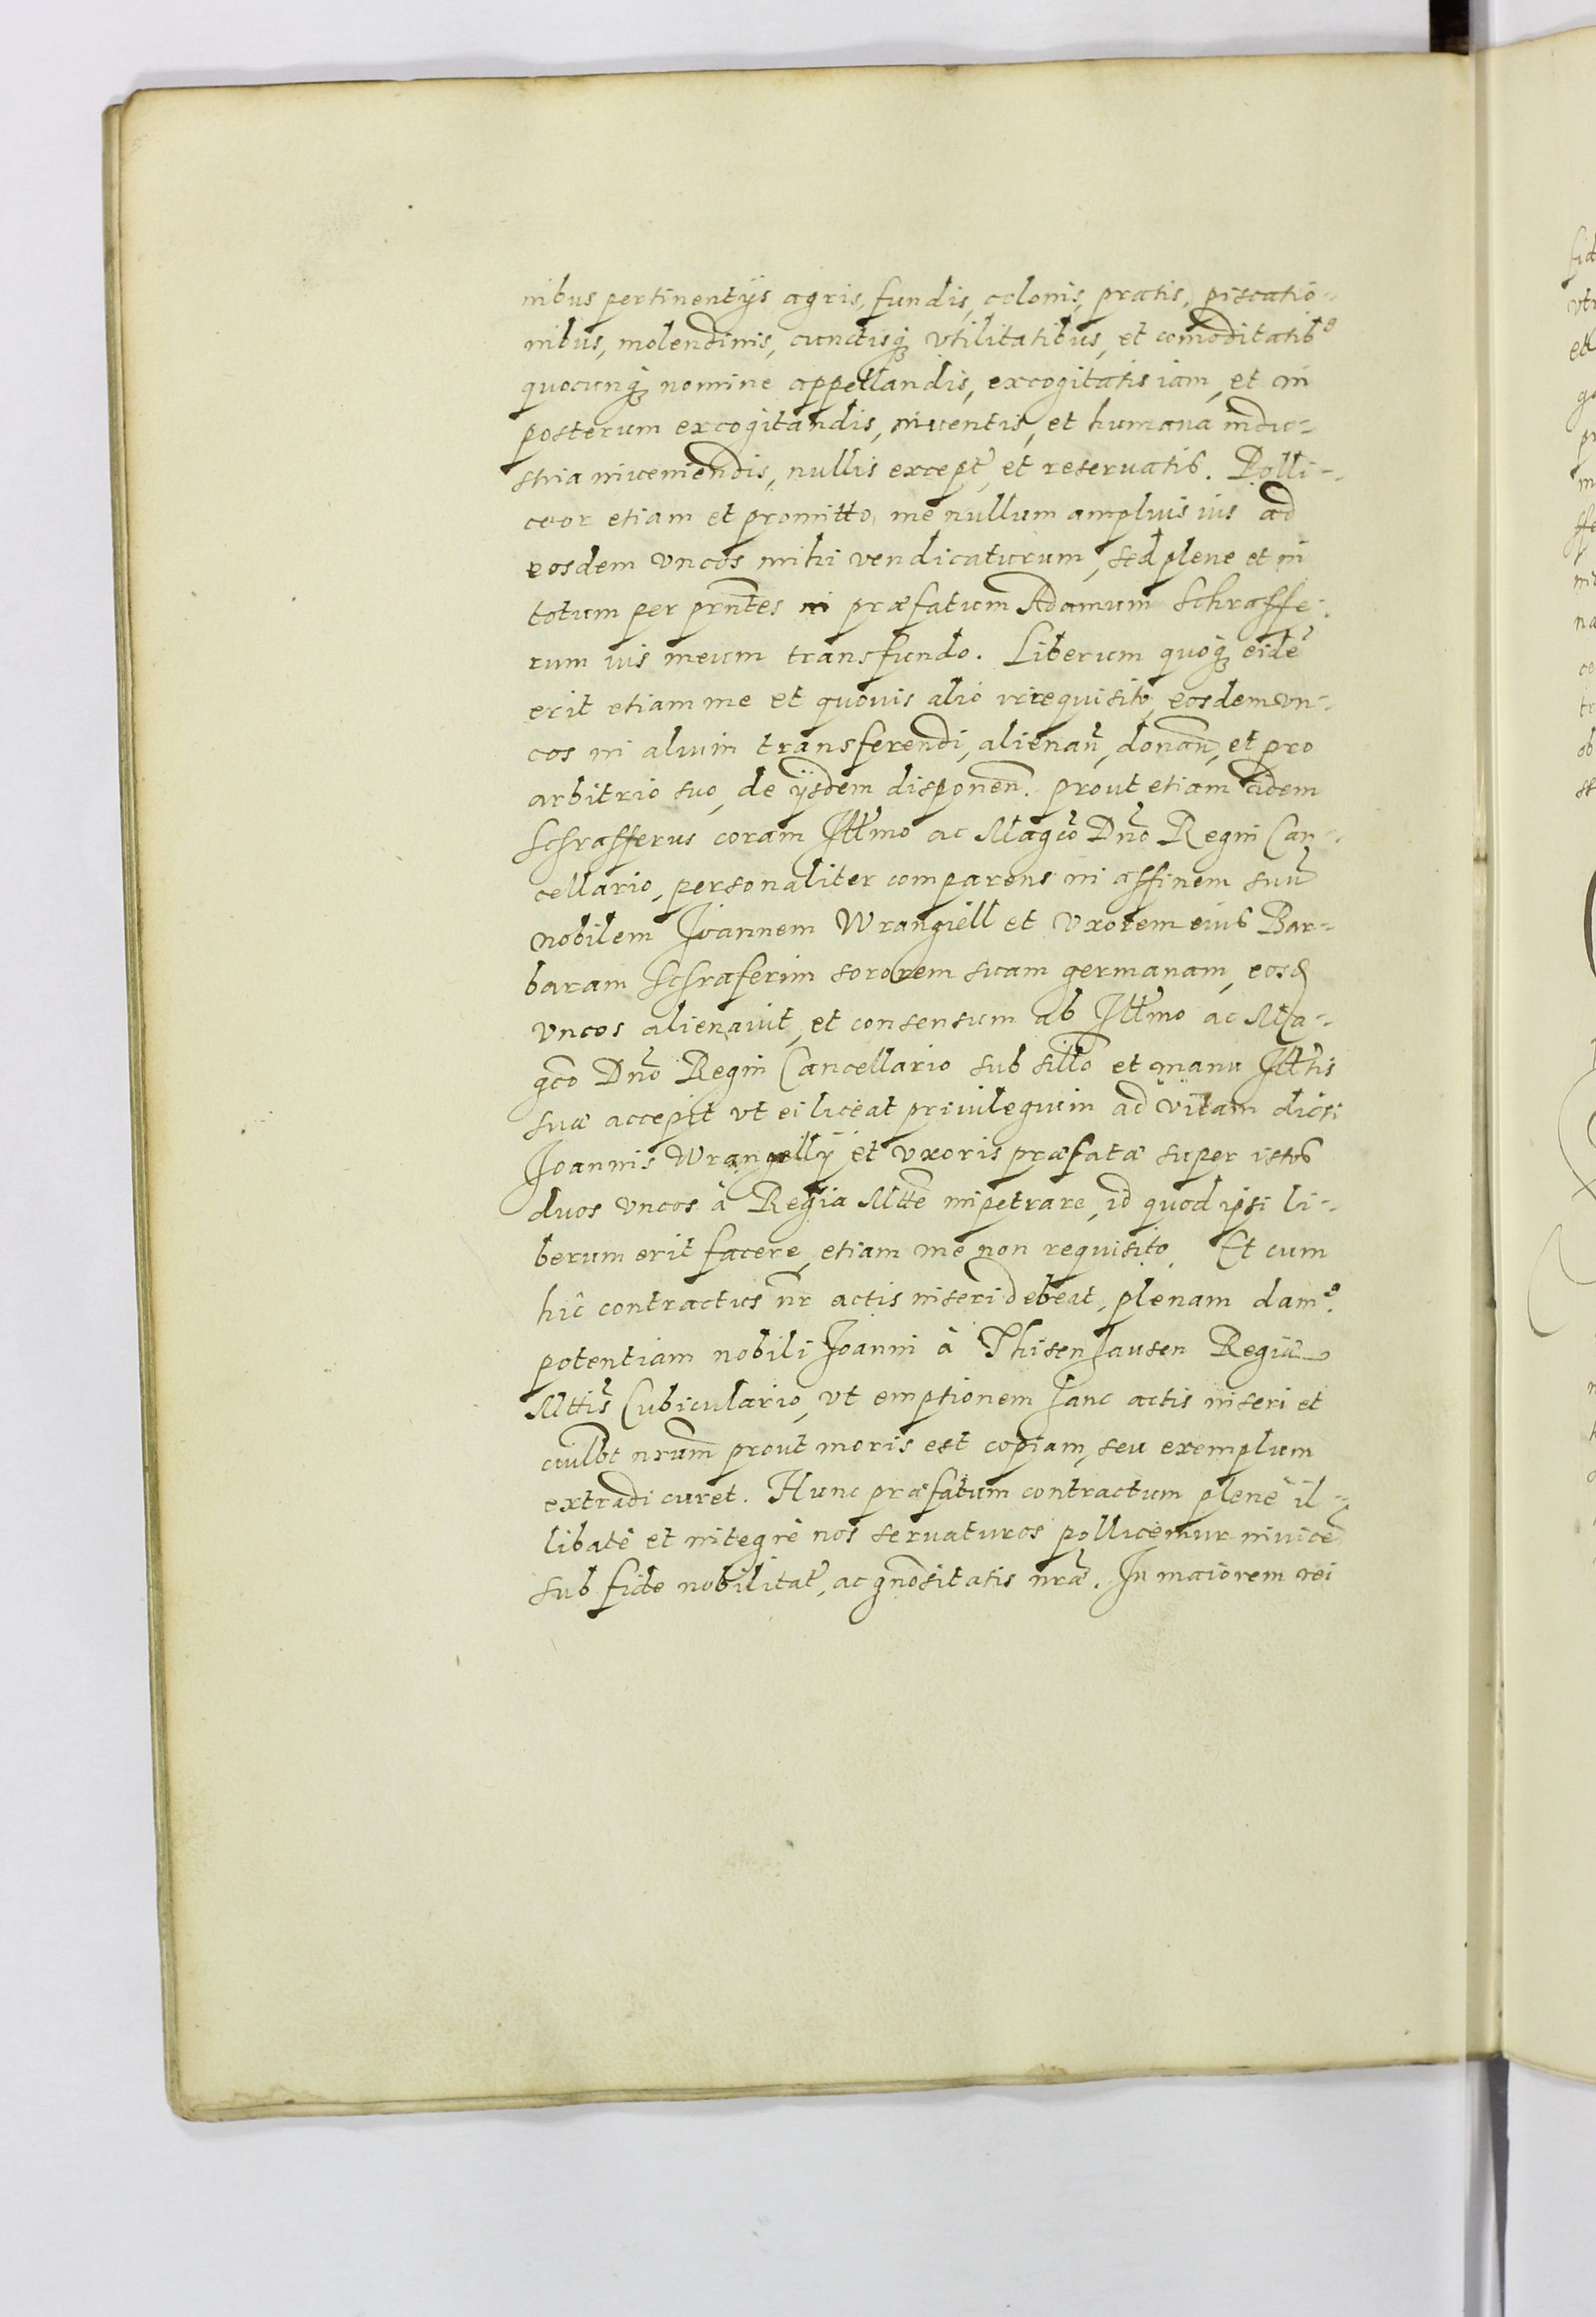 nibus pertinentijs agris, fundis, colonis, pratis, piscatio-
nibus, molendinis, cunctisq; vtilitatibus, et com̃oditatib⁹
quocunq; nomine appellandis, excogitatis iam, et in
posterum excogitandis, inuentis, et humana indu-
stria inueniendis, nullis except̃, et reseruatis. Polli-
ceor etiam et promitto, me nullum amplius ius ad
eosdem vncos mihi vendicaturum, sed plene et in
totum per prñtes in præfatum Adamum Schraffe-
rum ius meum transfundo. Liberum quoq; eidẽ
erit etiam me et quouis alio irrequisito, eosdem vn-
cos in alium transferendi, alienañ, donañ, et pro
arbitrio suo, de ijsdem disponeñ. prout etiam idem
Schrafferus coram Illmo ac Magco Dño Regni Can-
cellario, personaliter comparens in affinem suũ
nobilem Joannem Wrangiell et vxorem eius Bar-
baram Schraferin sororem suam germanam, eosd
vncos alienauit, et consensum ab Illmo ac Ma-
gco Dño Regni Cancellario sub sillo et manu Illtis
suæ accepit vt ei liceat priuilegium ad vitam dicti
Joannis Wrangellij et vxoris præfatæ super istos
duos vncos à Regia Mtte impetrare, id quod ipsi li-
berum erit facere, etiam me non requisito. Et cum
hic contractus nr̃ actis inseri debeat, plenam dam⁹.
potentiam nobili Joanni à Thisenhausen Regiæ
Mttis Cubiculario, vt emptionem hanc actis inseri et
cuilbt nrũm prout moris est copiam, seu exemplum
extradi curet. Hunc præfatum contractum plenè il-
libatè et integrè nos seruaturos pollicemur inuicẽ
sub fide nobilitat̃, ac gñositatis nræ. In maiorem rei